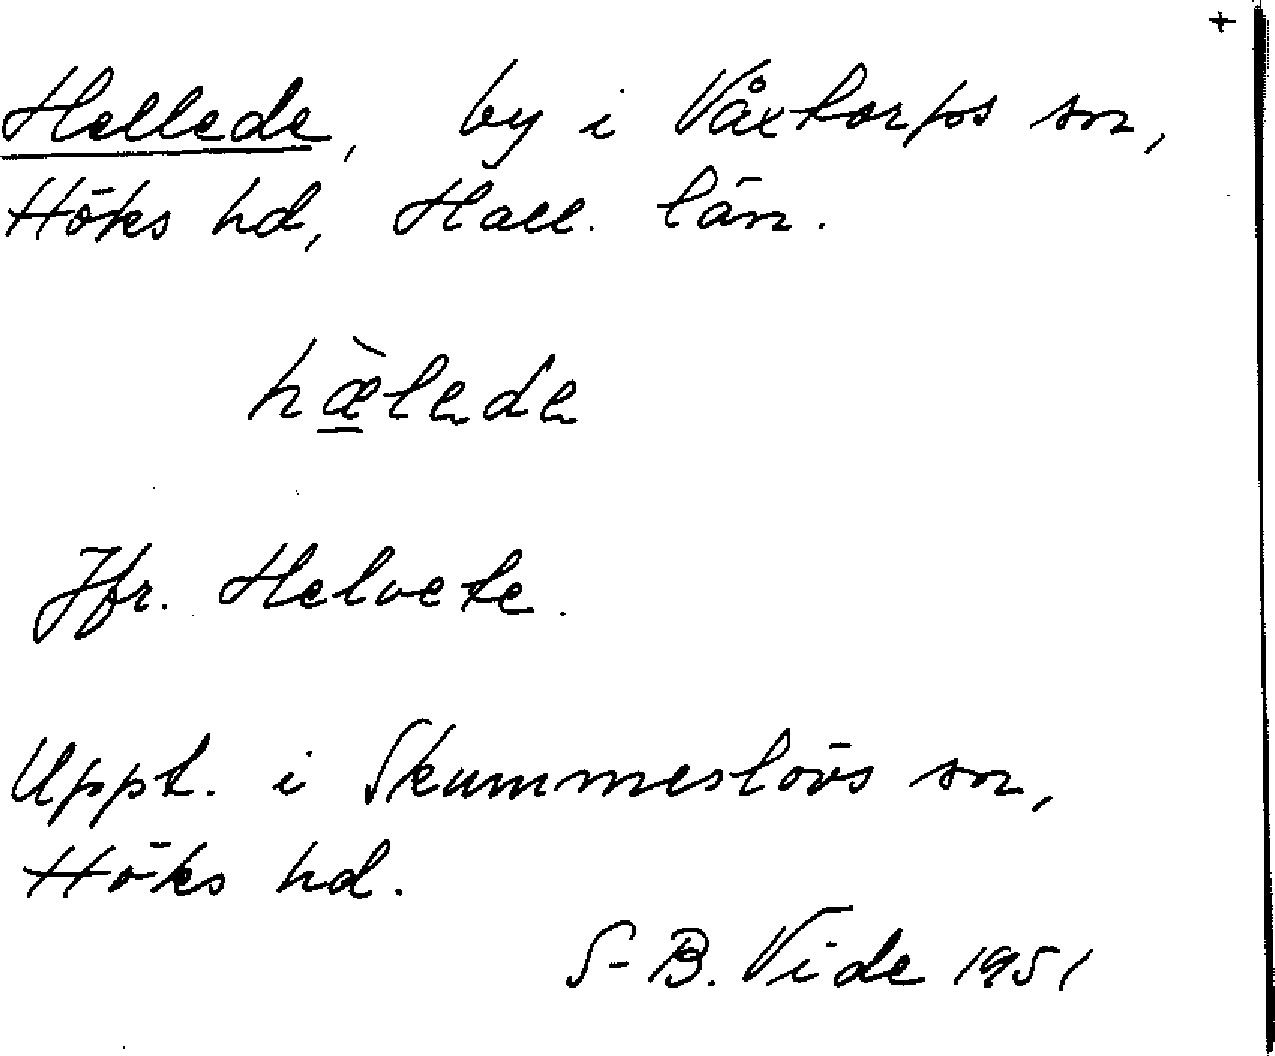 +
Hellede, by i Våxtorps sn,
Höks hd, Hall. län.
hæ̀lede
Jfr. Helvete.
Uppt. i Skummeslövs sn,
Höks hd.
S-B. Vide 1951